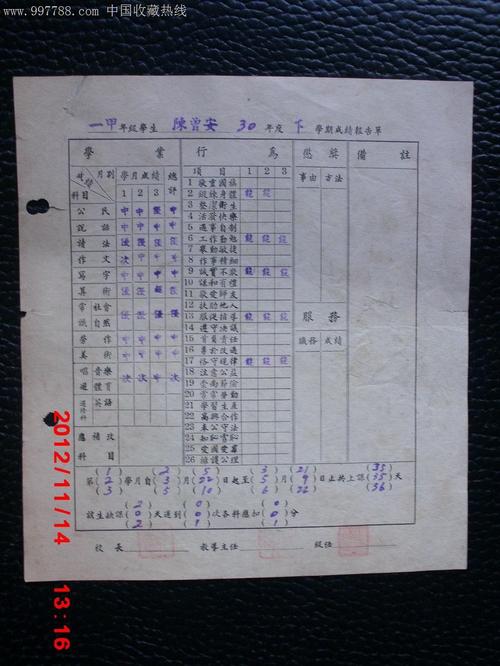 www.997788.com 中国收藏热线
一甲年級學生 陳曾安 30年度 下 學期成績報告單
學業 行為 懲獎 備註
月別 學月成績 總評 項目 1 2 3 事由 方法
科目 1 2 3
公民 中 中 中 中
說話 中 中 中 中
讀法 優 優 優 優
作文 次 中 中 中
寫字 中 中 中 中
算術
常識 社會 自然
勞作 中 中 中 中
美術 中 中 中 中
唱遊 音樂 體育 次 中 次 次
選修科 英語
應補考科目
1 敬重國旗
2 鍛鍊身體
3 整潔衛生
4 活潑快樂
5 遇事自制
6 工作勤勉
7 舉動敏捷
8 作事精細
9 誠實不欺
10 謙和有禮
11 敬愛師友
12 扶助他人
13 服從指導
14 遵守決議
15 肯負責任
16 勇於改過
17 恪守規律
18 注意公益
19 愛惜節儉
20 常常勞動
21 學習生產
22 高興合作
23 奉公守法
24 知恥雪恥
25 愛國愛羣
26 維護公理
服務
職務 成績
第(1)(2)(3)學月自(2)(3)(5)月(5)(22)(10)日起至(3)(5)(6)月(21)(9)(22)日止共上課(35)(35)(36)天
該生缺課(2)(0)(2)天遲到(0)(0)(1)次各科應扣(0)(0)(1)分
校長 教導主任 級任
2012/11/14 13:16